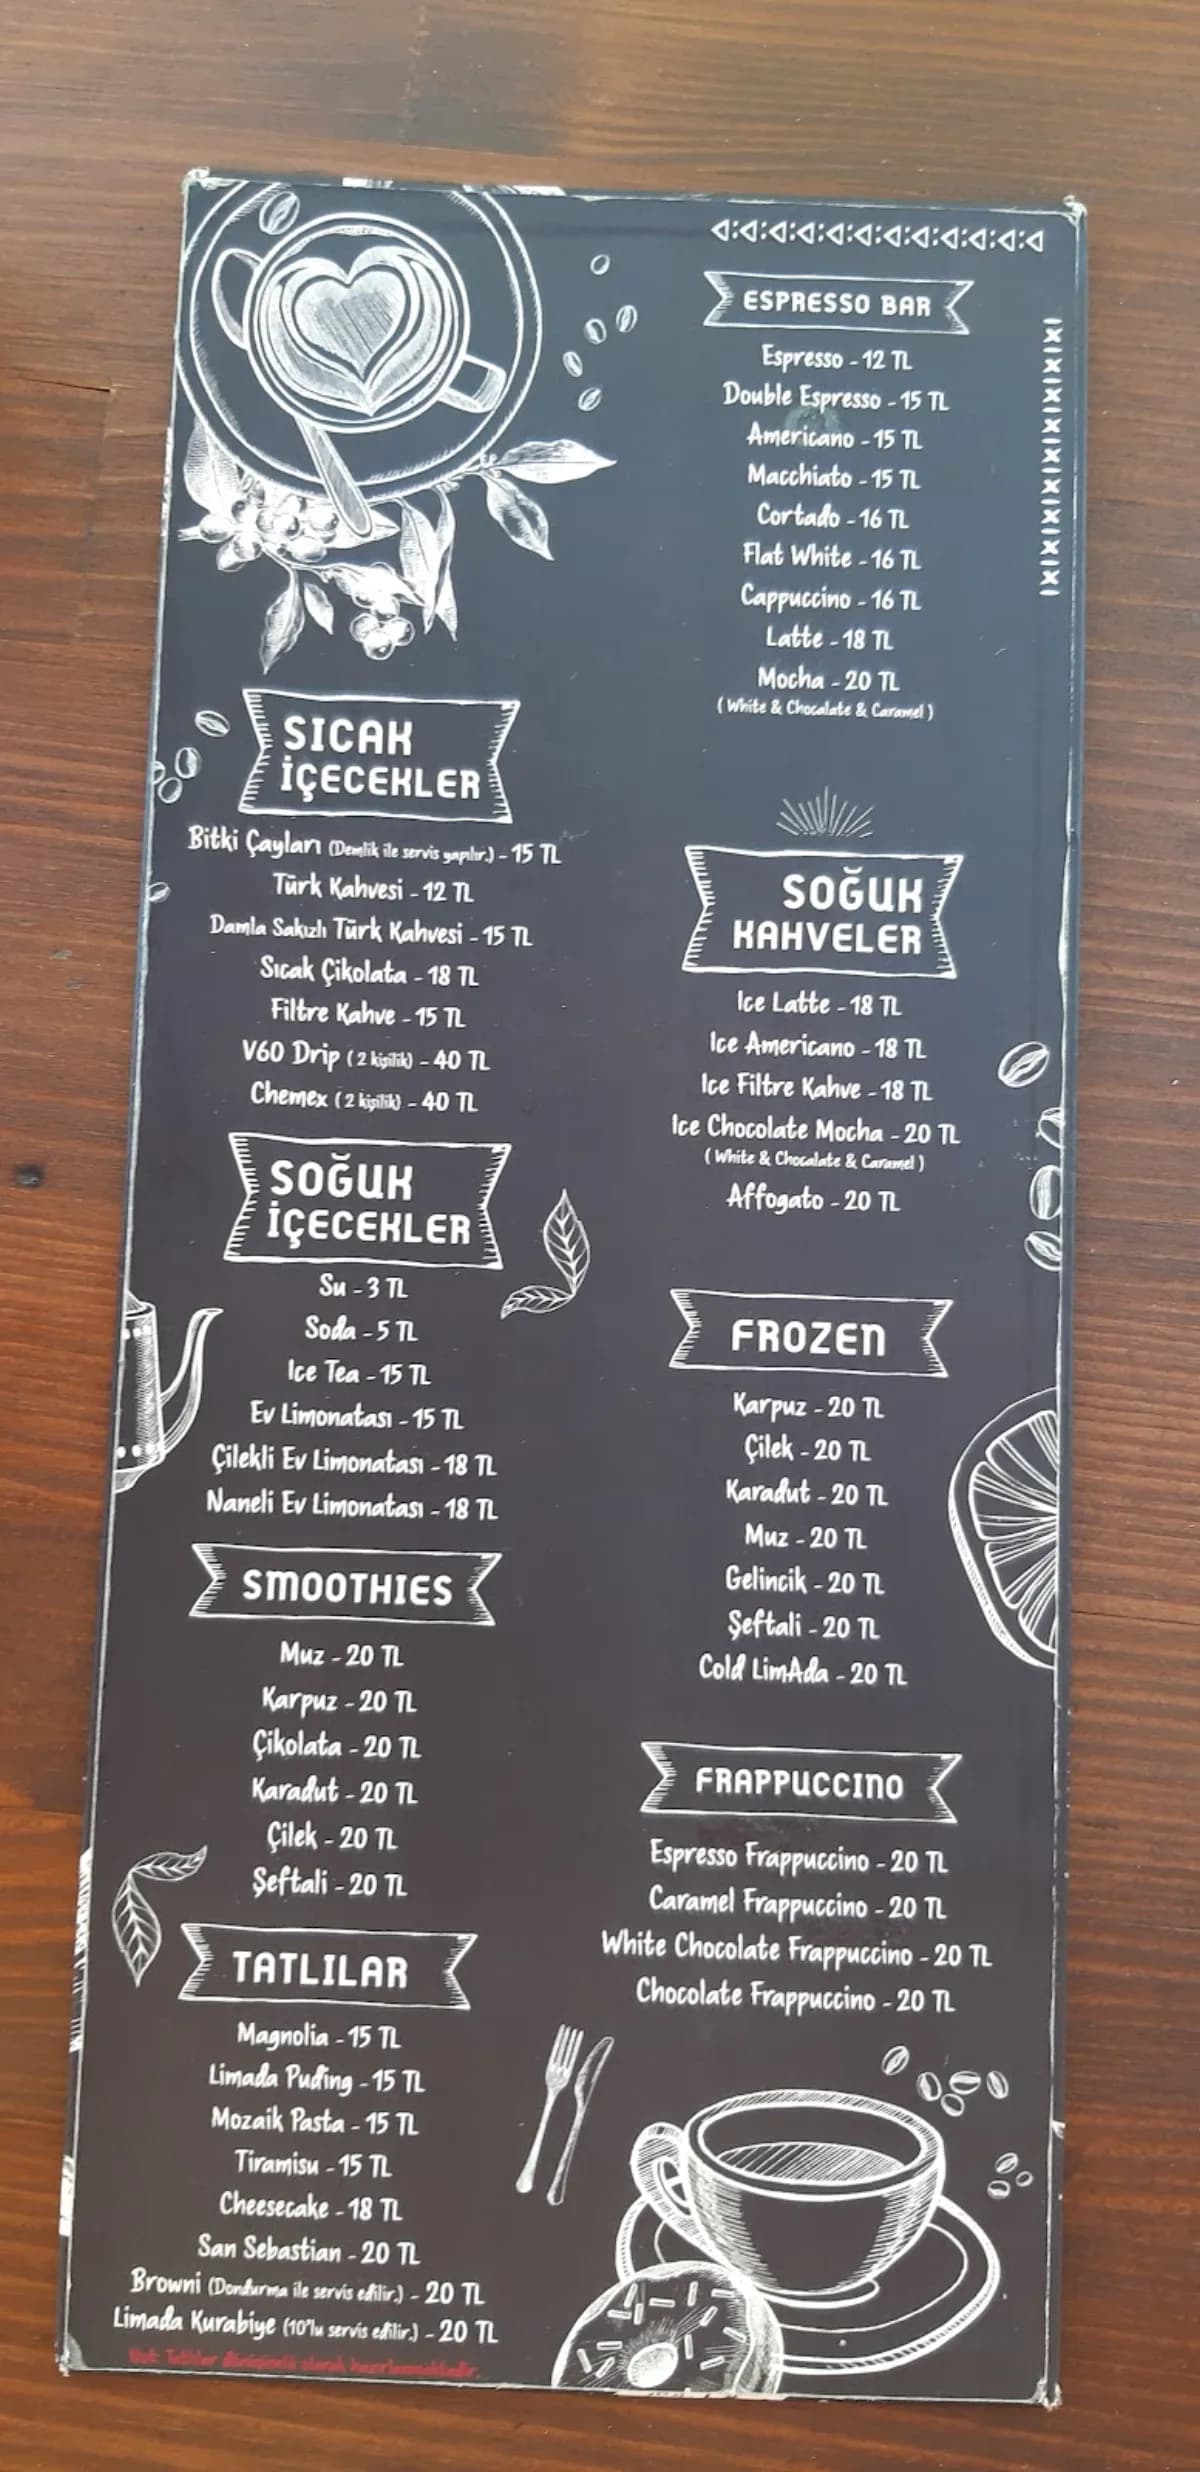 ESPRESSO BAR
Espresso - 12 TL
Double Espresso - 15 TL
Americano - 15 TL
Macchiato - 15 TL
Cortado - 16 TL
Flat White - 16 TL
Cappuccino - 16 TL
Latte - 18 TL
Mocha - 20 TL
( White & Chocalate & Caramel )
SICAK
İÇECEKLER
Bitki Çayları (Demlik ile servis yapılır.) - 15 TL
Türk Kahvesi - 12 TL
Damla Sakızlı Türk Kahvesi - 15 TL
Sıcak Çikolata - 18 TL
Filtre Kahve - 15 TL
V60 Drip ( 2 kişilik) - 40 TL
Chemex ( 2 kişilik) - 40 TL
SOĞUK
KAHVELER
Ice Latte - 18 TL
Ice Americano - 18 TL
Ice Filtre Kahve - 18 TL
Ice Chocolate Mocha - 20 TL
( White & Chocalate & Caramel )
Affogato - 20 TL
SOĞUK
İÇECEKLER
Su - 3 TL
Soda - 5 TL
Ice Tea - 15 TL
Ev Limonatası - 15 TL
Çilekli Ev Limonatası - 18 TL
Naneli Ev Limonatası - 18 TL
FROZEN
Karpuz - 20 TL
Çilek - 20 TL
Karadut - 20 TL
Muz - 20 TL
Gelincik - 20 TL
Şeftali - 20 TL
Cold LimAda - 20 TL
SMOOTHIES
Muz - 20 TL
Karpuz - 20 TL
Çikolata - 20 TL
Karadut - 20 TL
Çilek - 20 TL
Şeftali - 20 TL
FRAPPUCCINO
Espresso Frappuccino - 20 TL
Caramel Frappuccino - 20 TL
White Chocolate Frappuccino - 20 TL
Chocolate Frappuccino - 20 TL
TATLILAR
Magnolia - 15 TL
Limada Puding - 15 TL
Mozaik Pasta - 15 TL
Tiramisu - 15 TL
Cheesecake - 18 TL
San Sebastian - 20 TL
Browni (Dondurma ile servis edilir.) - 20 TL
Limada Kurabiye (10'lu servis edilir.) - 20 TL
Not: Tatlılar dönüşümlü olarak hazırlanmaktadır.